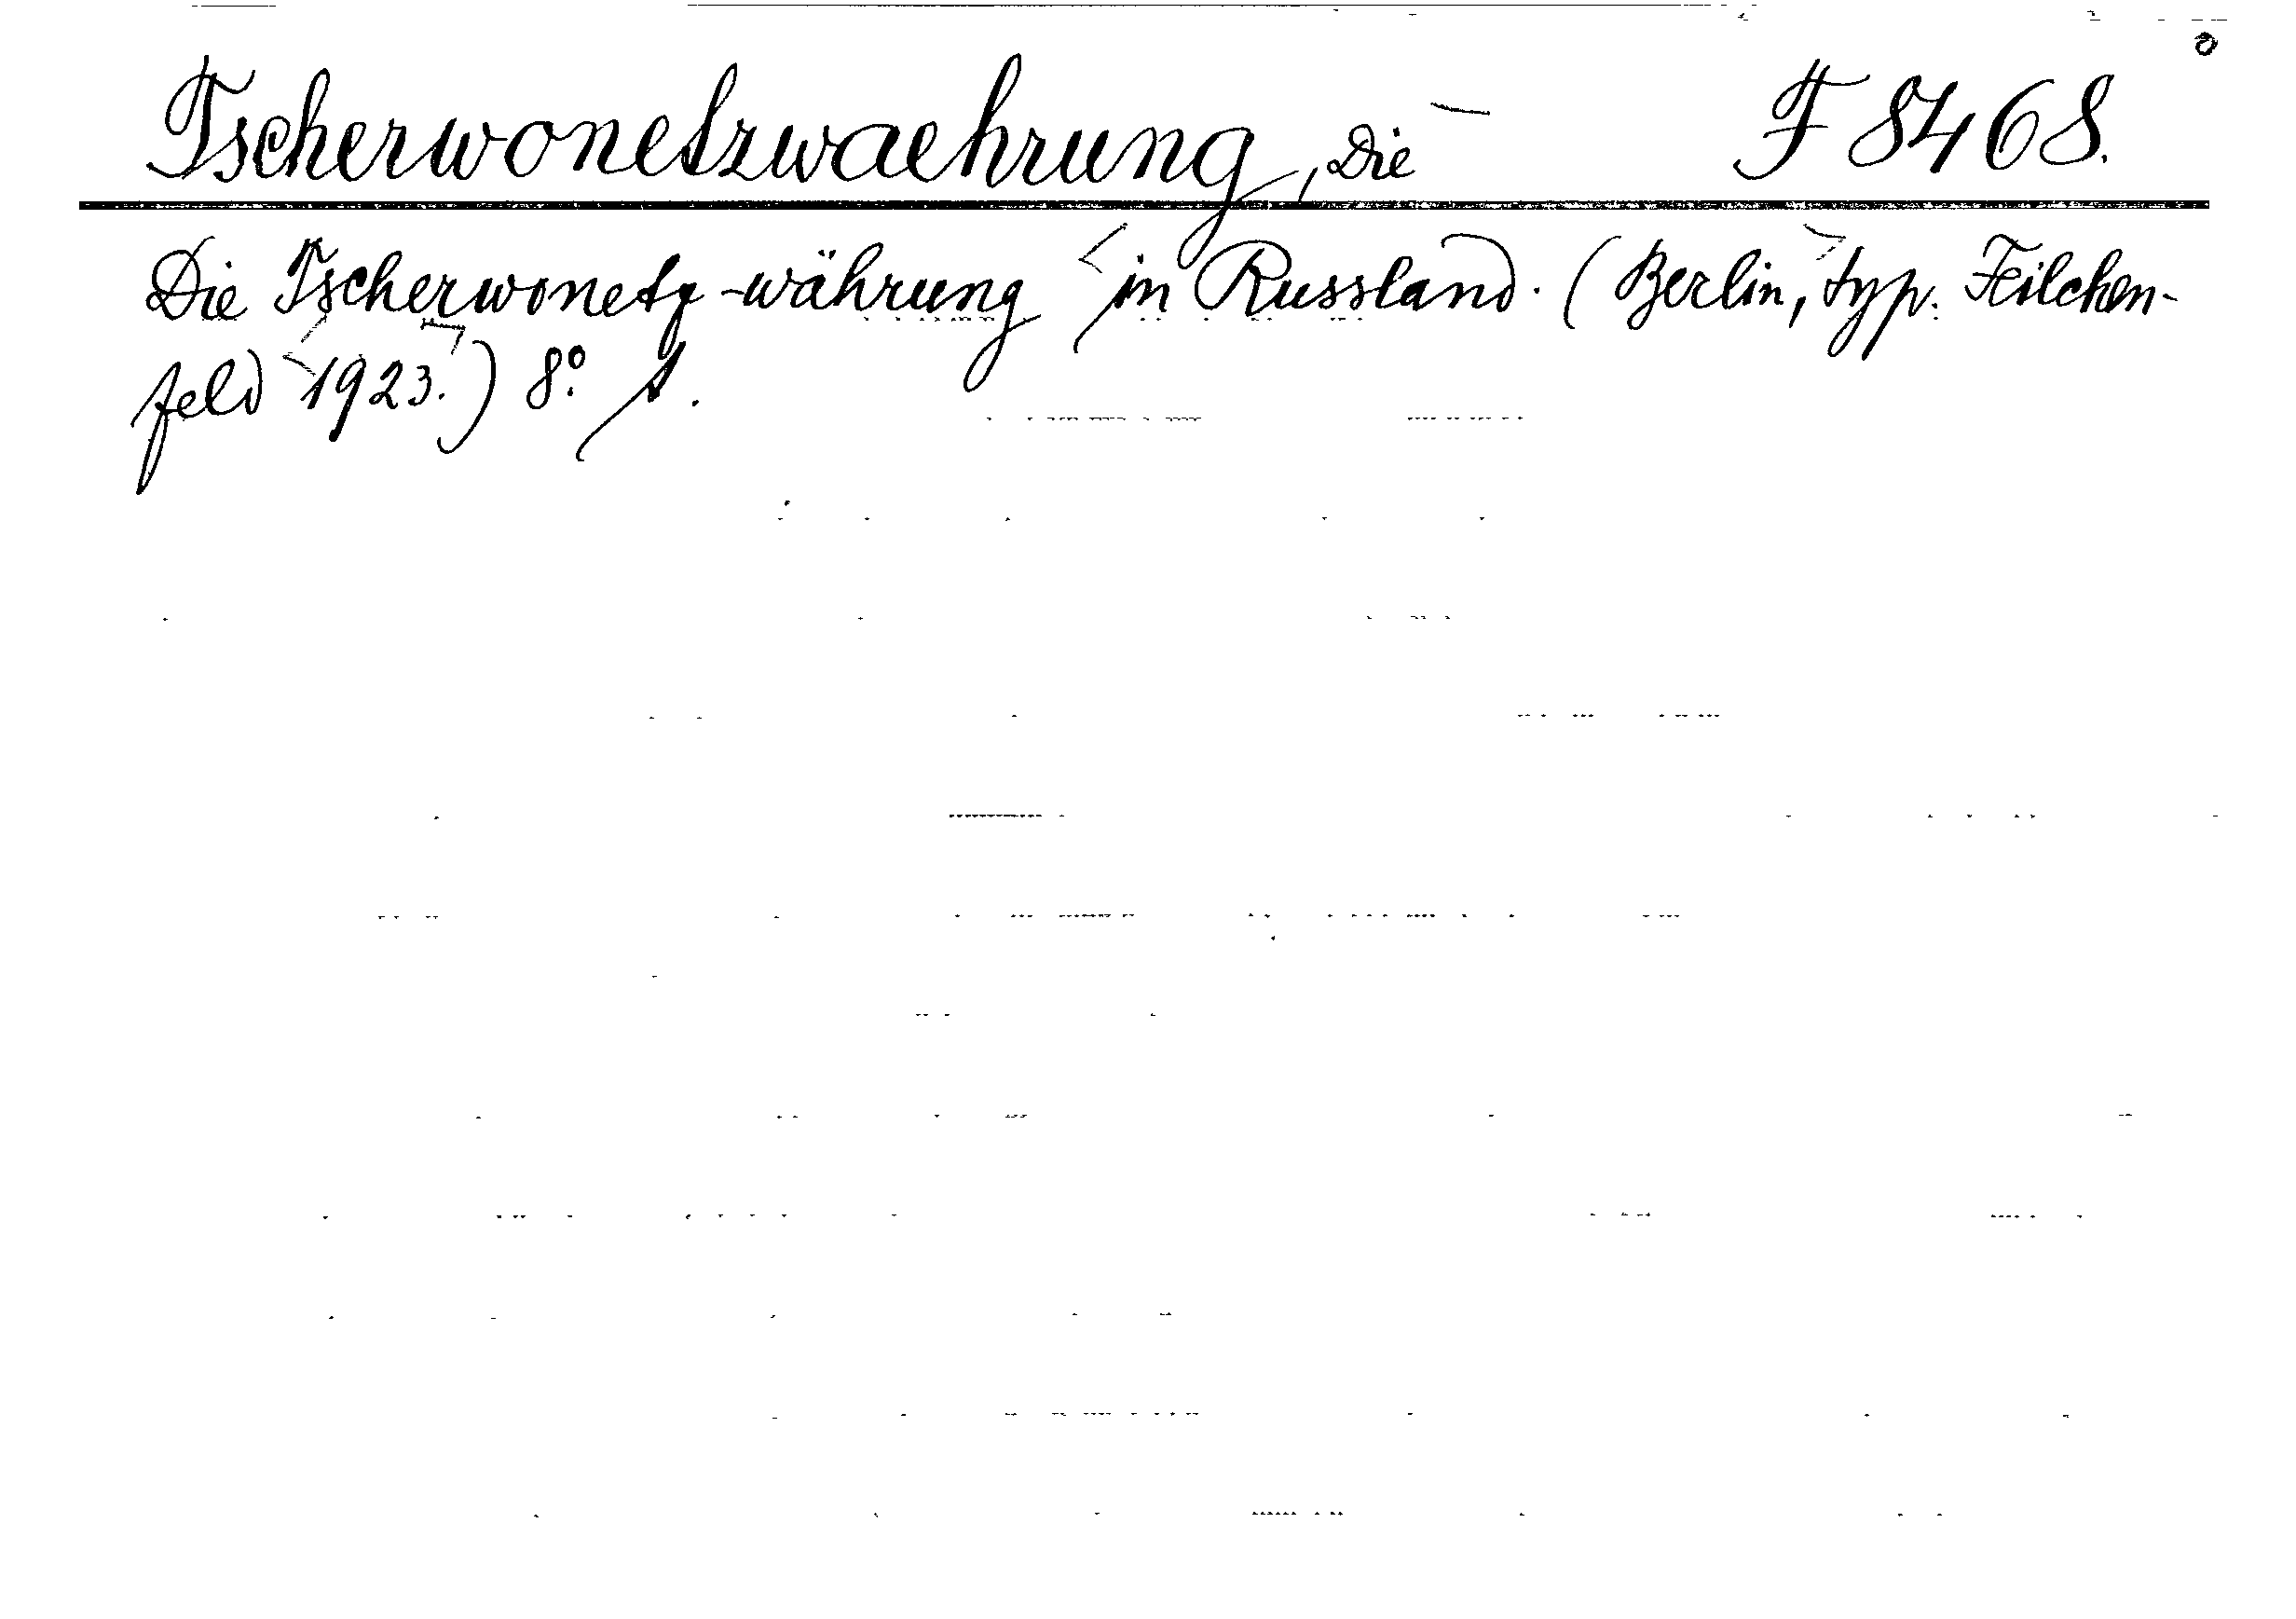 Tscherwonetzwaehrung, Die — F 8468.
Die Tscherwonetz-währung in Russland. (Berlin, typ. Feilchen-
feld 1923.) 8°. s.